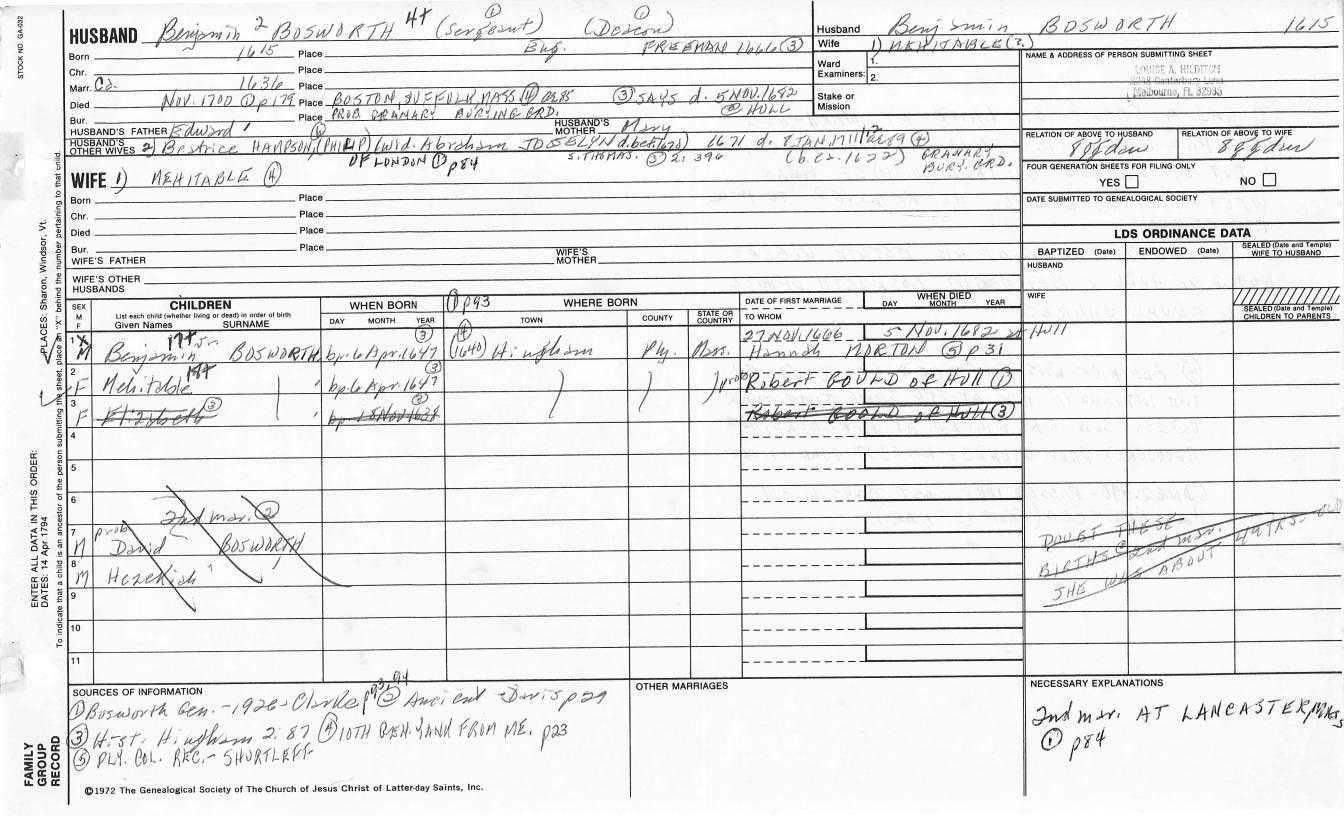 STOCK NO. GA-032
HUSBAND Benjamin 2 BOSWORTH 4+ (Sergeant) ① (Deacon) ①
Born 1615 Place Eng. FREEMAN 1666 (3)
Chr. Place
Marr. Ca. 1636 Place
Died NOV. 1700 ① p179 Place BOSTON, SUFFOLK, MASS ④ ③ SAYS d. 5 NOV. 1682 @ HULL
Bur. Place PROB GRANARY BURYING GRD.
HUSBAND'S FATHER Edward 1 ① HUSBAND'S MOTHER Mary
HUSBAND'S OTHER WIVES 2) Beatrice HAMPSON, (PHILIP) (wid. Abraham JOSSELYN d. bef. 1670) 1671 d. 8 JAN. 1711/12 ae 89 ④
OF LONDON ① p84 S. THOMAS. ③ 2:396 (b. ca. 1622) GRANARY BURY. GRD.
WIFE 1) MEHITABLE ④
Born Place
Chr. Place
Died Place
Bur. Place
WIFE'S FATHER WIFE'S MOTHER
WIFE'S OTHER HUSBANDS
Husband Benjamin BOSWORTH 1615
Wife 1) MEHITABLE (?)
Ward Examiners: 1.
2.
Stake or Mission
NAME & ADDRESS OF PERSON SUBMITTING SHEET
LOUISE A. HILDITCH
Canterbury Lane
Melbourne, FL 32935
RELATION OF ABOVE TO HUSBAND RELATION OF ABOVE TO WIFE
8ggdau 8ggdau
FOUR GENERATION SHEETS FOR FILING ONLY
YES NO
DATE SUBMITTED TO GENEALOGICAL SOCIETY
LDS ORDINANCE DATA
BAPTIZED (Date) ENDOWED (Date) SEALED (Date and Temple) WIFE TO HUSBAND
HUSBAND
WIFE
SEALED (Date and Temple) CHILDREN TO PARENTS
SEX M F
CHILDREN
List each child (whether living or dead) in order of birth
Given Names SURNAME
WHEN BORN
DAY MONTH YEAR
① p93 WHERE BORN
TOWN COUNTY STATE OR COUNTRY
DATE OF FIRST MARRIAGE
TO WHOM
WHEN DIED
DAY MONTH YEAR
1 X M Benjamin Jr. 17+ BOSWORTH bp. 6 Apr. 1647 ③ ④ (1640) Hingham Ply. Mass. 27 NOV. 1666 5 Nov. 1682 at Hull
Hannah MORTON ⑤ p31
2 F Mehitable 18+ " bp 6 Apr. 1647 ③ prob Robert GOULD of Hull ①
3 F Elizabeth ③ bp. 18 Nov 1638 ③ Robert GOULD of Hull ③
4
5
6
2nd mar. ②
7 M prob David BOSWORTH
8 M Hezekiah "
9
10
11
DOUBT THESE
BIRTHS @ 2nd mar.
SHE WAS ABOUT 49 YRS. OLD
SOURCES OF INFORMATION
① Bosworth Gen. - 1926 - Clarke p93, 94 ② Ancient - Davis p29
③ Hist. Hingham 2:87 ④ 10TH GEN. YANK FROM ME. p23
⑤ PLY. COL. REC. - SHURTLEFF
OTHER MARRIAGES
NECESSARY EXPLANATIONS
2nd mar. AT LANCASTER, MASS
① p84
©1972 The Genealogical Society of The Church of Jesus Christ of Latter-day Saints, Inc.
FAMILY GROUP RECORD
ENTER ALL DATA IN THIS ORDER:
DATES: 14 Apr 1794
PLACES: Sharon, Windsor, Vt.
To indicate that a child is an ancestor of the person submitting the sheet, place an "X" behind the number pertaining to that child.